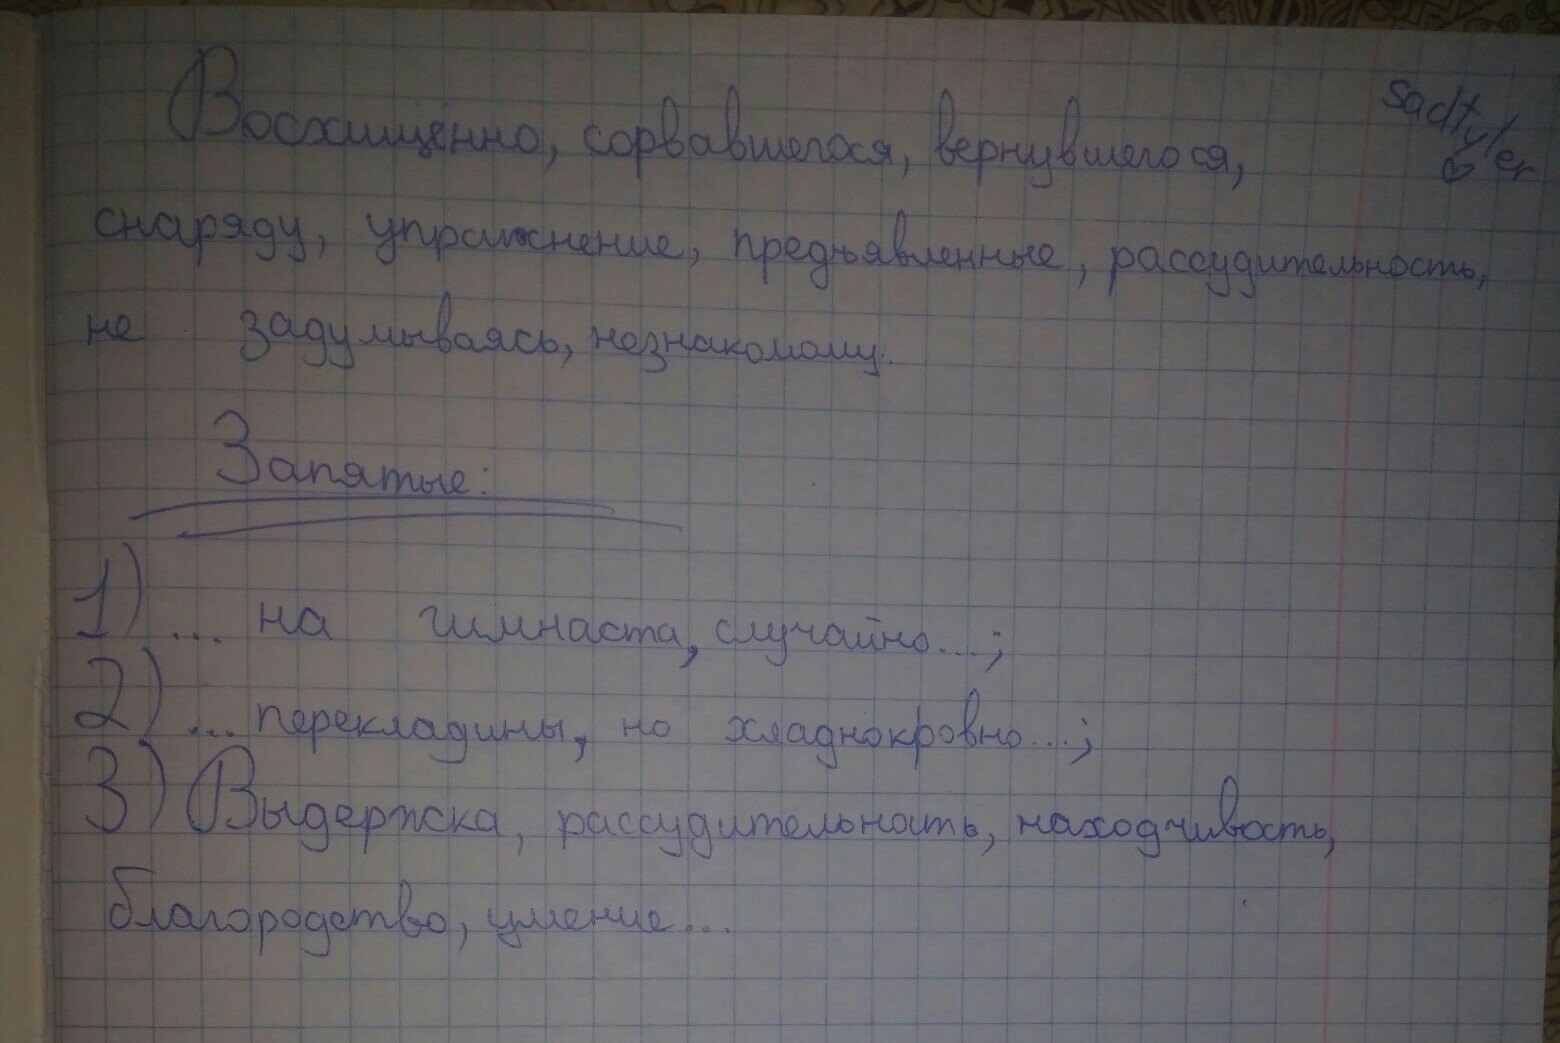 Восхищенно, сорвавшегося, вернувшегося,
sadtyler
снаряду, упражнение, предъявленные, рассудительность,
не задумываясь, незнакомому.
Запятые:
1) ... на гимнаста, случайно...;
2) ... перекладины, но хладнокровно...;
3) Выдержка, рассудительность, находчивость,
благородство, умение...